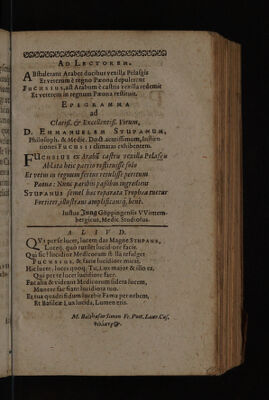 AD LECTOREM.
ABstulerant Arabes ducibus vexilla Pelasgis
Et veterum è regno Pæona depulerant
FUCHSIUS, ast Arabum è castris vexilla redemit
Et veterem in regnum Pæona restituit.
EPIGRAMMA
ad
Clariss. & Excellentiss. Virum,
D. EMMANUELEM STUPANUM,
Philosoph. & Medic. Doct. acutissimum, Institu-
tiones FUCHSII illimatas exhibentem.
FUCHSIUS ex Arabū castris vexilla Pelasgûm
Ablata heic partio restituisse solo
Et vetus in regnum fertur retulisse peritum
Pæona: Nunc paribus passibus ingrediens
STUPANUS semel hac reparata Trophæa tuetur
Fortiter, illustrans amplificansq́; benè.
Iustus Jung Göppingensis VVirtem-
bergicus, Medic. Studiosus.
ALIUD.
QVs per se lucet, lucem das Magne STUPANE,
Luceq́; quò rutilet lucidiore facis.
Qui sic? lucidior Medicorum stella refulget
FUCHSIUS, & facie lucidiore micat.
Hic lucet, luces quoq́; Tu, Lux maior & illo es,
Qui per te lucet lucidiore face.
Fac alia & videant Medicorum sidera lucem,
Munere fac fiant lucidiora tuo.
Et tua quadrifidum lucebit Fama per orbem,
Et Basileæ Lux lucida, Lumen eris.
M. Balthasar Simon Fr. Poët. Laur. Cæs.